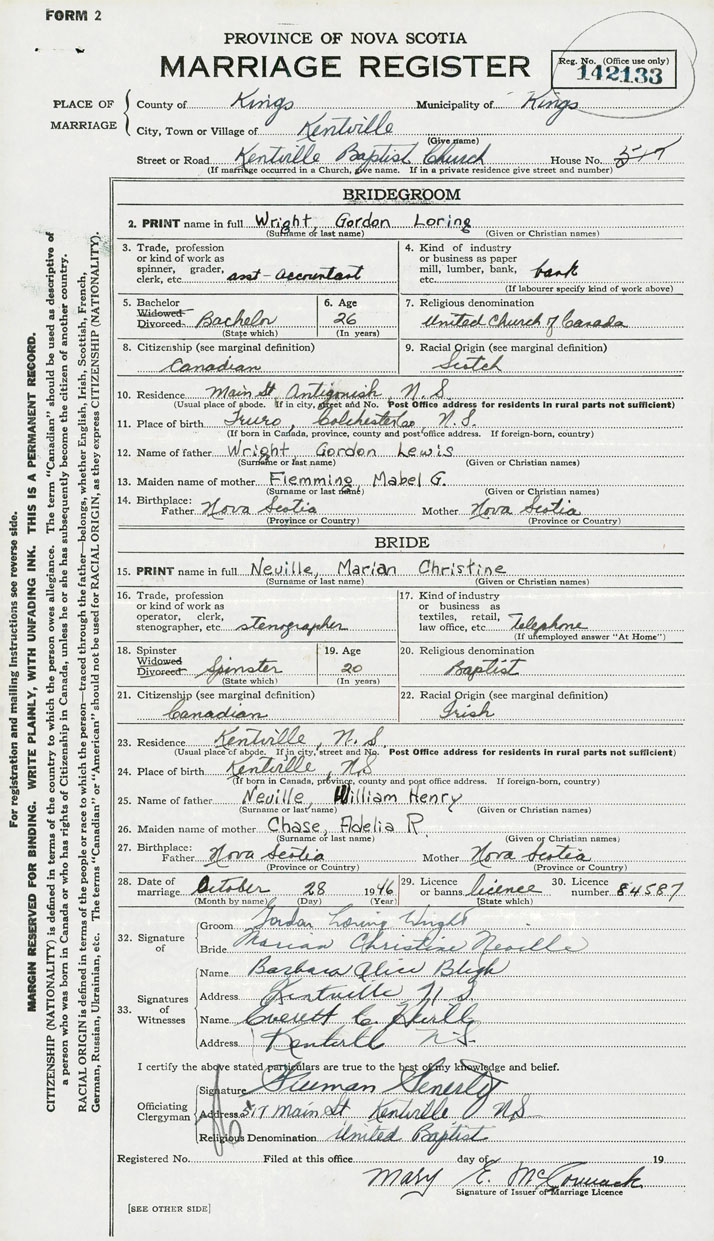 FORM 2
PROVINCE OF NOVA SCOTIA
MARRIAGE REGISTER
Reg. No. (Office use only)
142133
PLACE OF MARRIAGE
County of Kings Municipality of Kings
City, Town or Village of Kentville
(Give name)
Street or Road Kentville Baptist Church House No. 517
(If marriage occurred in a Church, give name. If in a private residence give street and number)
BRIDEGROOM
2. PRINT name in full Wright, Gordon Loring
(Surname or last name) (Given or Christian names)
3. Trade, profession or kind of work as spinner, grader, clerk, etc. asst-accountant
4. Kind of industry or business as paper mill, lumber, bank, etc. bank
(If labourer specify kind of work above)
5. Bachelor Widowed Divorced Bachelor
(State which)
6. Age 26
(In years)
7. Religious denomination
United Church of Canada
8. Citizenship (see marginal definition)
Canadian
9. Racial Origin (see marginal definition)
Scotch
10. Residence Main St Antigonish, N.S.
(Usual place of abode. If in city, street and No. Post Office address for residents in rural parts not sufficient)
11. Place of birth Truro, Colchester Co, N.S.
(If born in Canada, province, county and post office address. If foreign-born, country)
12. Name of father Wright Gordon Lewis
(Surname or last name) (Given or Christian names)
13. Maiden name of mother Flemming Mabel G.
(Surname or last name) (Given or Christian names)
14. Birthplace: Father Nova Scotia Mother Nova Scotia
(Province or Country) (Province or Country)
BRIDE
15. PRINT name in full Neville, Marian Christine
(Surname or last name) (Given or Christian names)
16. Trade, profession or kind of work as operator, clerk, stenographer, etc. stenographer
17. Kind of industry or business as textiles, retail, law office, etc. telephone
(If unemployed answer "At Home")
18. Spinster Widowed Divorced Spinster
(State which)
19. Age 20
(In years)
20. Religious denomination
Baptist
21. Citizenship (see marginal definition)
Canadian
22. Racial Origin (see marginal definition)
Irish
23. Residence Kentville, N.S.
(Usual place of abode. If in city, street and No. Post Office address for residents in rural parts not sufficient)
24. Place of birth Kentville, NS
(If born in Canada, province, county and post office address. If foreign-born, country)
25. Name of father Neville, William Henry
(Surname or last name) (Given or Christian names)
26. Maiden name of mother Chase, Adelia R.
(Surname or last name) (Given or Christian names)
27. Birthplace: Father Nova Scotia Mother Nova Scotia
(Province or Country) (Province or Country)
28. Date of marriage October 28 1946
(Month by name) (Day) (Year)
29. Licence or banns licence
(State which)
30. Licence number 84587
32. Signature of
Groom Gordon Loring Wright
Bride Marian Christine Neville
33. Signatures of Witnesses
Name Barbara Alice Bligh
Address Kentville N S
Name Everett C.
Address Kentville N.S.
I certify the above stated particulars are true to the best of my knowledge and belief.
Officiating Clergyman
Signature Freeman Fenerty
Address 517 Main St Kentville NS
Religious Denomination United Baptist
Registered No. Filed at this office day of 19
Mary E. McCormack
Signature of Issuer of Marriage Licence
[SEE OTHER SIDE]
For registration and mailing instructions see reverse side.
MARGIN RESERVED FOR BINDING. WRITE PLAINLY, WITH UNFADING INK. THIS IS A PERMANENT RECORD.
CITIZENSHIP (NATIONALITY) is defined in terms of the country to which the person owes allegiance. The term "Canadian" should be used as descriptive of
a person who was born in Canada or who has rights of Citizenship in Canada, unless he or she has subsequently become the citizen of another country.
RACIAL ORIGIN is defined in terms of the people or race to which the person—traced through the father—belongs, whether English, Irish, Scottish, French,
German, Russian, Ukrainian, etc. The terms "Canadian" or "American" should not be used for RACIAL ORIGIN, as they express CITIZENSHIP (NATIONALITY).